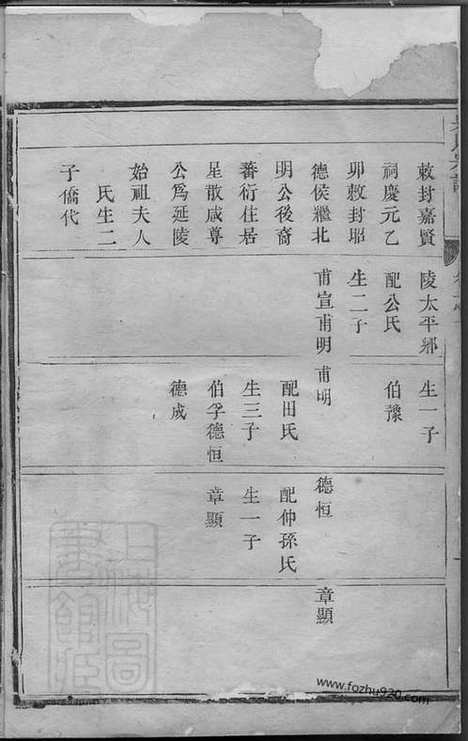 敕封嘉賢
祠慶元乙
卯敕封昭
德侯繼北
明公後裔
蕃衍住居
星散咸尊
公爲延陵
始祖夫人
氏生二
子僑代
陵太平鄉
配公氏
生二子
甫宣甫明
生一子
伯豫
甫明
配田氏
生三子
伯孚德恒
德成
德恒
配仲孫氏
生一子
章顯
章顯
www.fozhu920.com